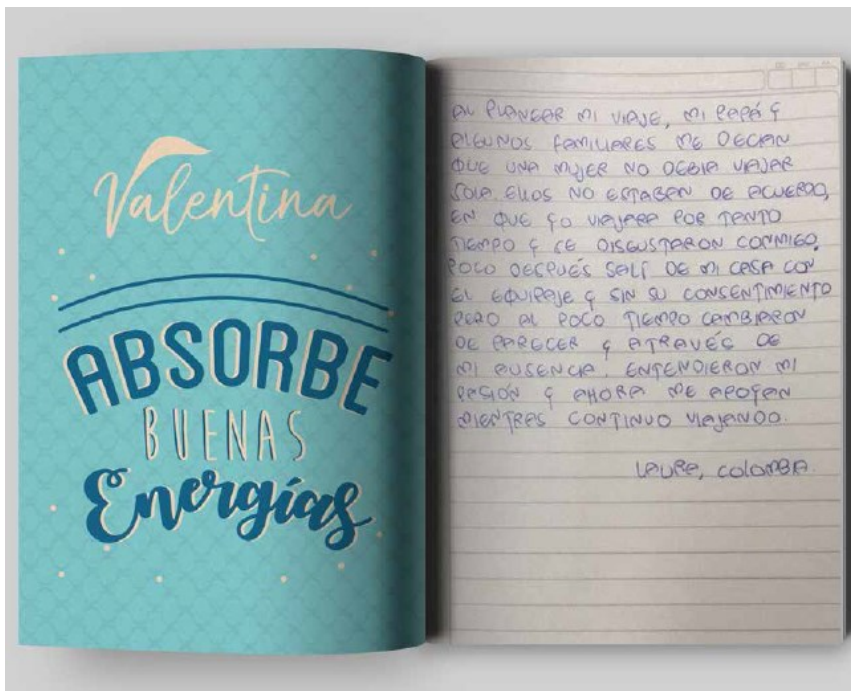 Valentina
ABSORBE
BUENAS
Energías
AL PLANEAR MI VIAJE, MI PAPÁ Y
ALGUNOS FAMILIARES ME DECIAN
QUE UNA MUJER NO DEBIA VIAJAR
SOLA. ELLOS NO ESTABAN DE ACUERDO,
EN QUE YO VIAJARA POR TANTO
TIEMPO Y SE DISGUSTARON CONMIGO.
POCO DESPUÉS SALÍ DE MI CASA CON
EL EQUIPAJE Y SIN SU CONSENTIMIENTO
PERO AL POCO TIEMPO CAMBIARON
DE PARECER Y ATRAVÉS DE
MI AUSENCIA. ENTENDIERON MI
PASIÓN Y AHORA ME APOYAN
MIENTRAS CONTINUO VIAJANDO.
LAURA, COLOMBIA.